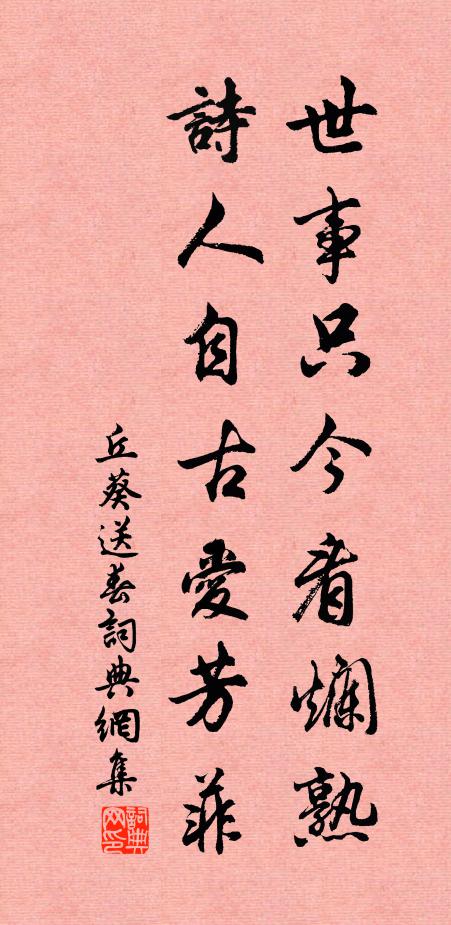 世事只今看爛熟
詩人自古愛芳菲
丘葵送春詞典網集
詞典网印